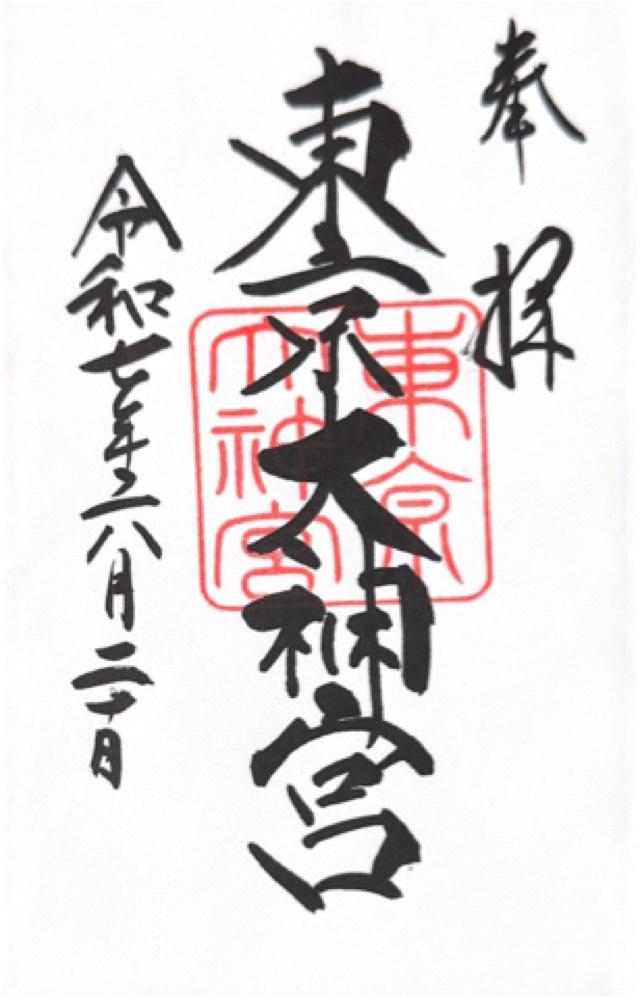 奉拝
東京大神宮
東京
大神宮
令和七年二八月二十日